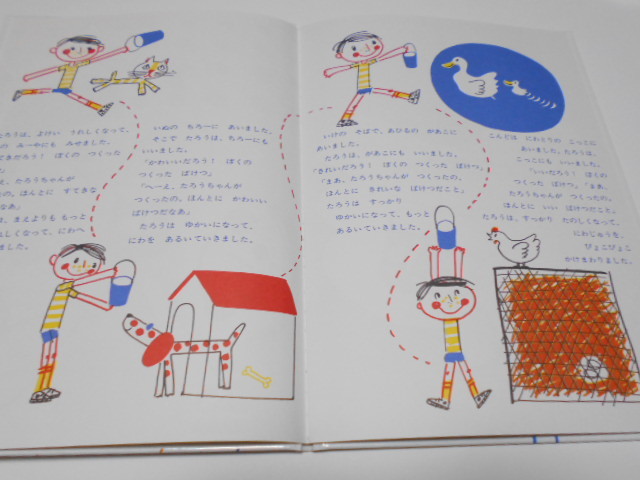 たろうは、よけい うれしくなって、
の みーやにも みせました。
できだろう! ぼくの つくった
え、たろうちゃんが
つくったの。ほんとに すてきな
は、まえよりも もっと
しくなって、にわへ
ました。
いぬの ちろーに あいました。
そこで たろうは、ちろーにも
いいました。
「かわいいだろう! ぼくの
つくった ばけつ」
「へーえ、たろうちゃんが
つくったの。ほんとに かわいい
ばけつだなあ」
たろうは ゆかいになって、
にわを あるいていきました。
いけの そばで、あひるの があこに
あいました。
たろうは、があこにも いいました。
「きれいだろう! ぼくの つくった ばけつ」
「まあ、たろうちゃんが つくったの。
ほんとに きれいな ばけつだこと」
たろうは すっかり
ゆかいになって、もっと
あるいていきました。
こんどは にわとりの こっこに
あいました。たろうは、
こっこにも いいました。
「いいだろう! ぼくの
つくった ばけつ」「まあ、
たろうちゃんが つくったの。
ほんとに いい ばけつだこと」
たろうは、すっかり たのしくなって、
にわじゅうを、
ぴょこぴょこ
かけまわりました。